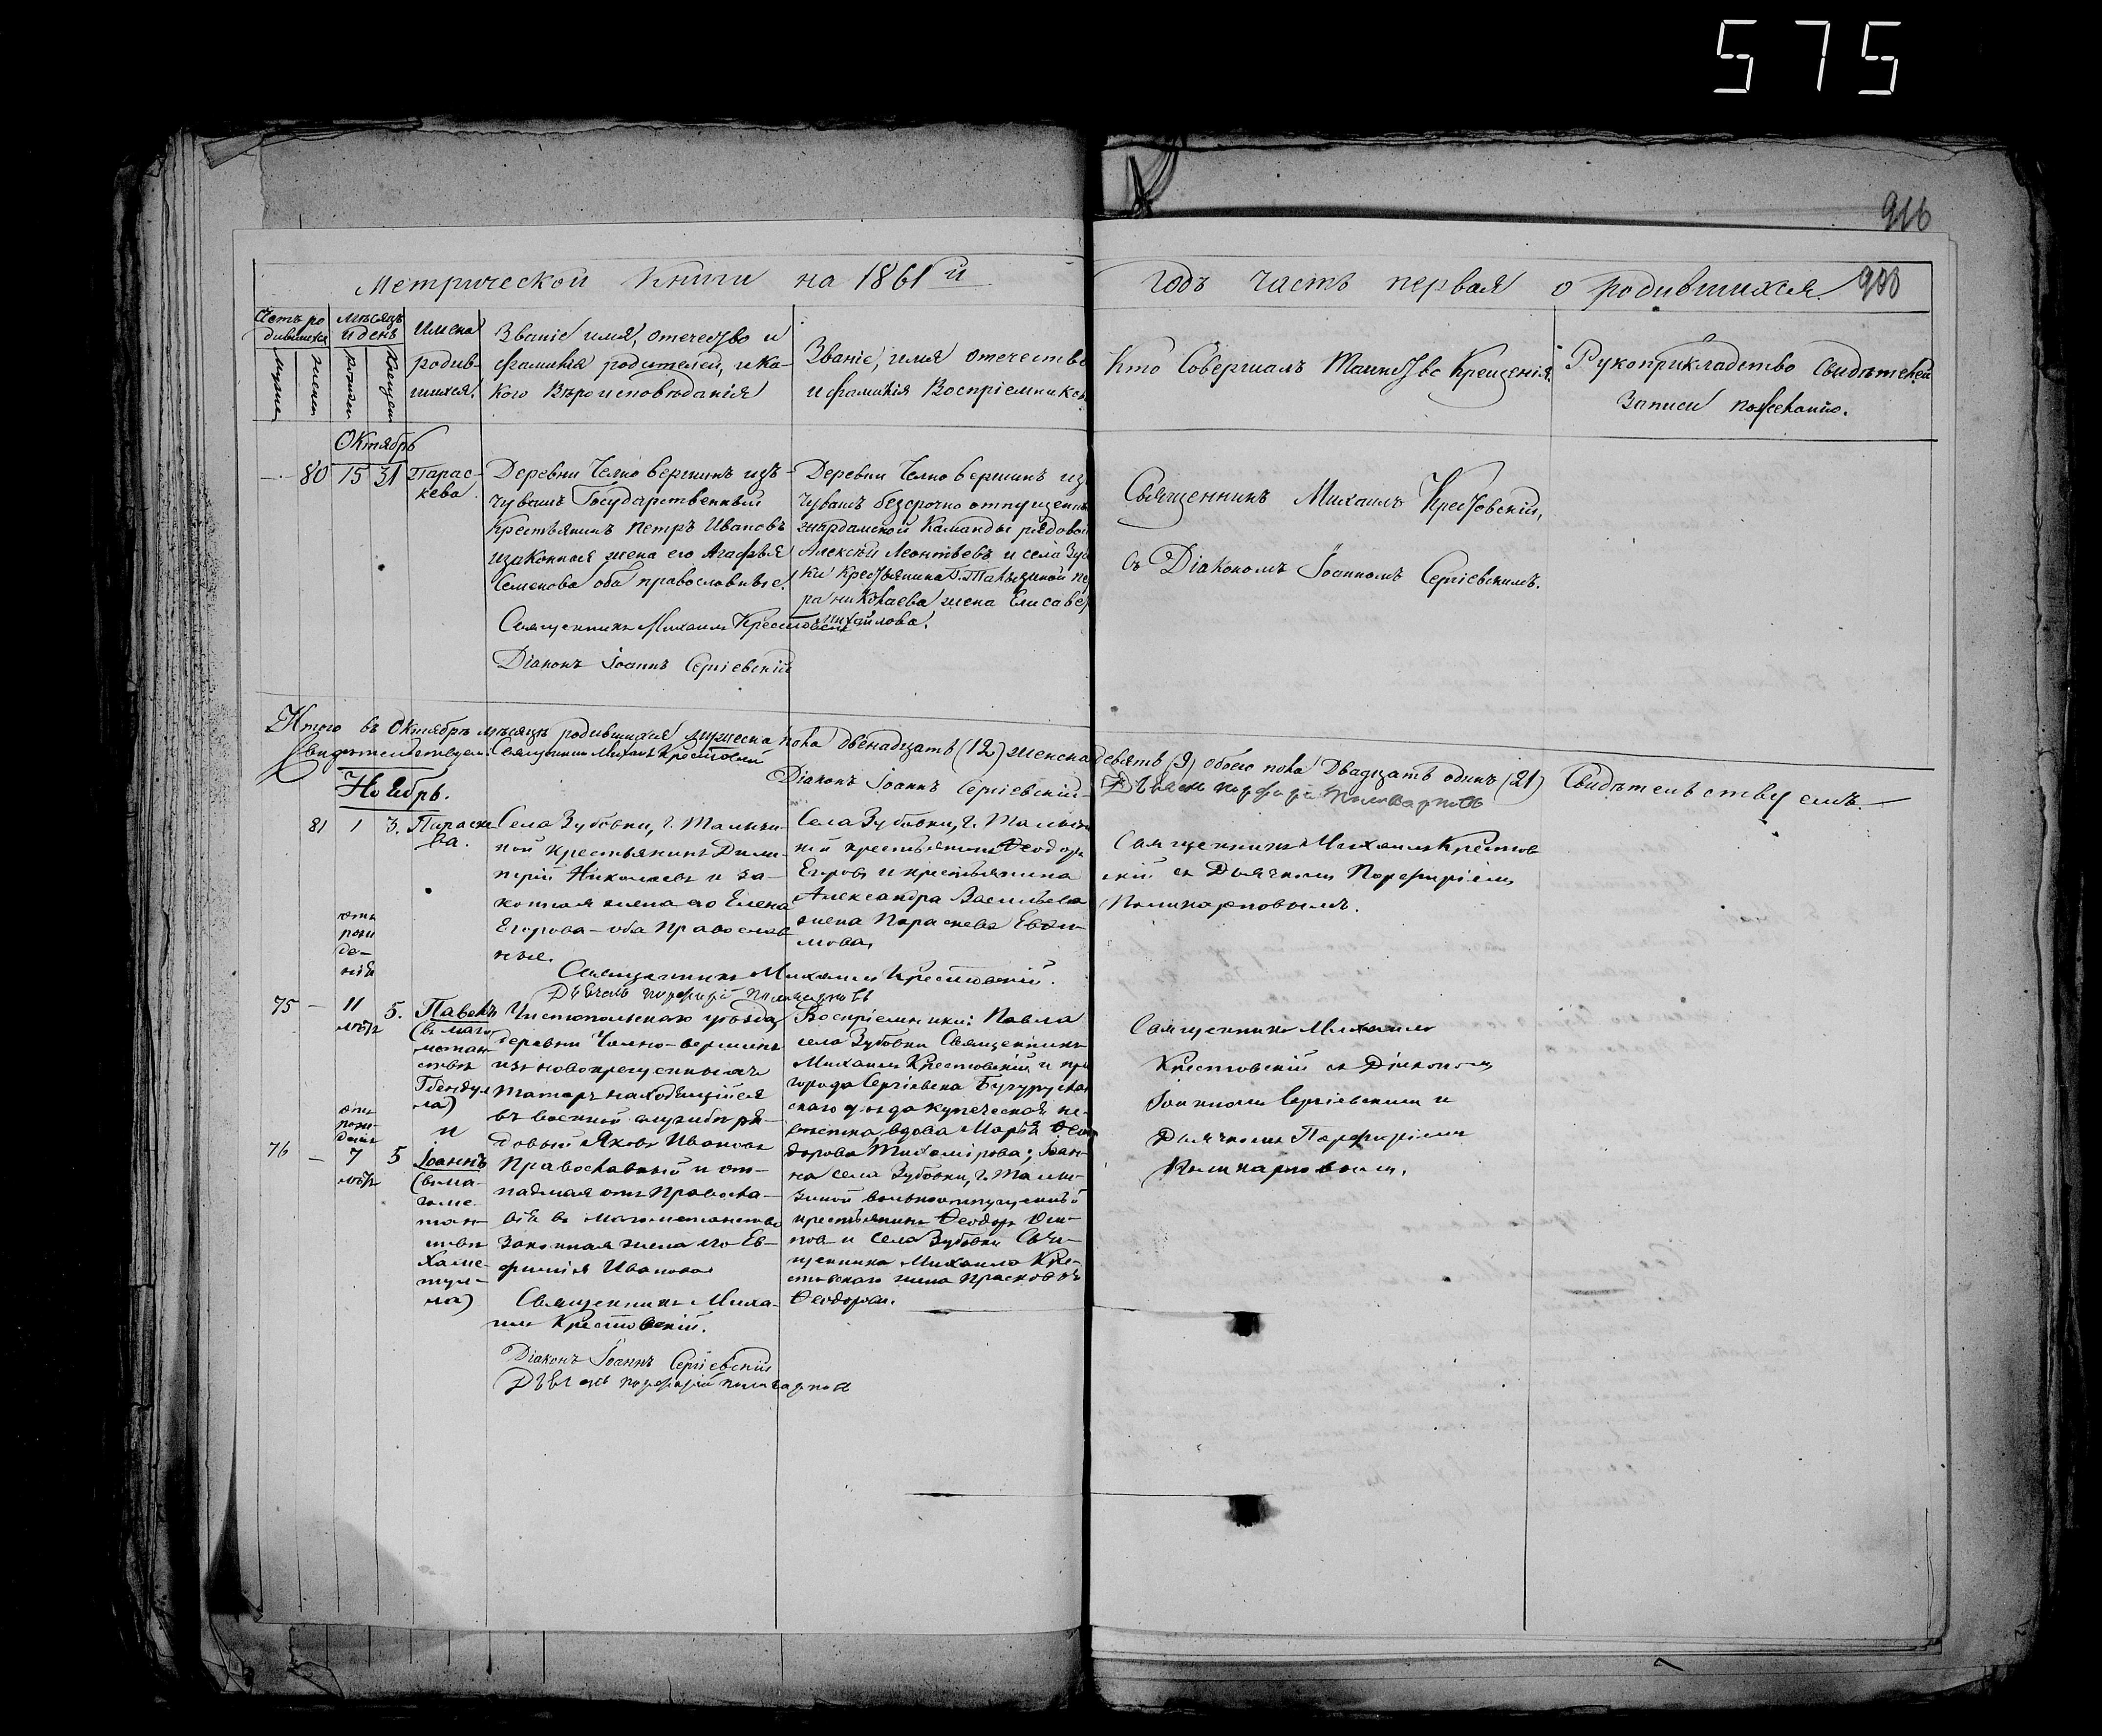 575
916
Метрической книги на 1861й
годъ часть первая о родившихся. 900
Счетъ ро
дившихся
Мѣсяцъ
и день
Имена
родив-
шихся.
Званіе имя, отечество и
фамилія родителей, и ка-
кого вѣроисповѣданія
Званіе, имя отечество
и фамилія воспріемниковъ
Кто совершалъ таинство крещенія.
Рукоприкладство свидѣтелей
записи по желанію.
Октябрь
— 80 15 31 Парас-
кева
Деревни Челно вершинъ изъ
чувашъ Государственный
крестьянинъ Петръ Ивановъ
изаконная жена его Агафья
Семенова оба православные.
Священникъ Михаилъ Крестовскій
Діаконъ Іоаннъ Сергіевскій
Деревни Челно вершинъ из
чувашъ безсрочно отпущенны
Команды рядовой
Алексѣй Леонтьевъ и села Зуб
ки крестьянина Г. Талызиной Пе
ра николаева жена Елисавет
михайлова.
Священникъ Михаилъ Крестовскій,
съ Діакономъ Іоанномъ Сергіевскимъ.
Итого въ Октябрѣ мѣсяцѣ родившихся мужеска пола двенадцать (12) женска девять (9) обоего пола двадцать одинъ (21) Свидѣтельствуемъ.—
Свидѣтельствуем. Священникъ Михаилъ Крестовскій
Діаконъ Іоаннъ Сергіевскій
Дьячекъ порфирій Поликарповъ
Ноябрь.
81 1 3. Параске
ва.
Села Зубовки, г. Талызи-
ной крестьянинъ Дими-
трій Николаевъ и за-
конная жена его Елена
Егорова — оба Православ
ные.
Священникъ Михаилъ Крестовскій.
Дьячекъ порфирій поликарповъ
Села Зубовки, г. Талызи
ной крестьянинъ Ѳеодоръ
Егоровъ и крестьянина
Александра Васильева
жена Параскева Евѳи-
мова.
Священникъ Михаилъ Крестов
скій съ Дьячкомъ Порфиріемъ
Поликарповымъ.
отъ
рож
де-
нія
75 — 11 5. Павелъ
лѣтъ
(въ маго
метан-
ствѣ
Гбендул
ла)
и
Чистопольскаго уѣзда,
деревни Челно-вершинъ
изъ новокрещенныхъ
татаръ находящійся
въ военной службѣ ря-
довый Яковъ Ивановъ
Православный и от-
падшая отъ Правосла-
вія въ магометанство
законная жена его Ев-
фимія Иванова
Священникъ Миха-
илъ Крестовскій.
Діаконъ Іоаннъ Сергіевскій
Дьячекъ порфирій поликарповъ
Воспріемники: Павла
села Зубовки Священникъ
Михаилъ Крестовскій и при
города Сергіевска Бугурусланс
скаго уѣзда купеческая не-
вѣстка, вдова Марія Ѳео
дорова Тихомірова; Іоан-
на села Зубовки, г. Талы-
зиной вольноотпущенный
крестьянинъ Ѳеодоръ Оси-
повъ и села Зубовки Свя-
щенника Михаила Кре-
стовскаго жена Прасковья
Ѳеодорова.
Священникъ Михаилъ
Крестовскій съ Діакономъ
Іоанномъ Сергіевскимъ и
Дьячкомъ Порфиріемъ
Поликарповымъ.
отъ
рож-
денія
76 — 7 5 Іоаннъ
лѣтъ
(въ ма-
гоме-
тан-
ствѣ
Хаме-
тул-
ла)